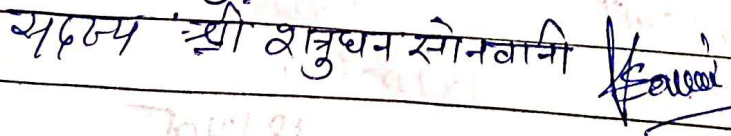 सदस्य श्री शत्रुघन सोनवानी